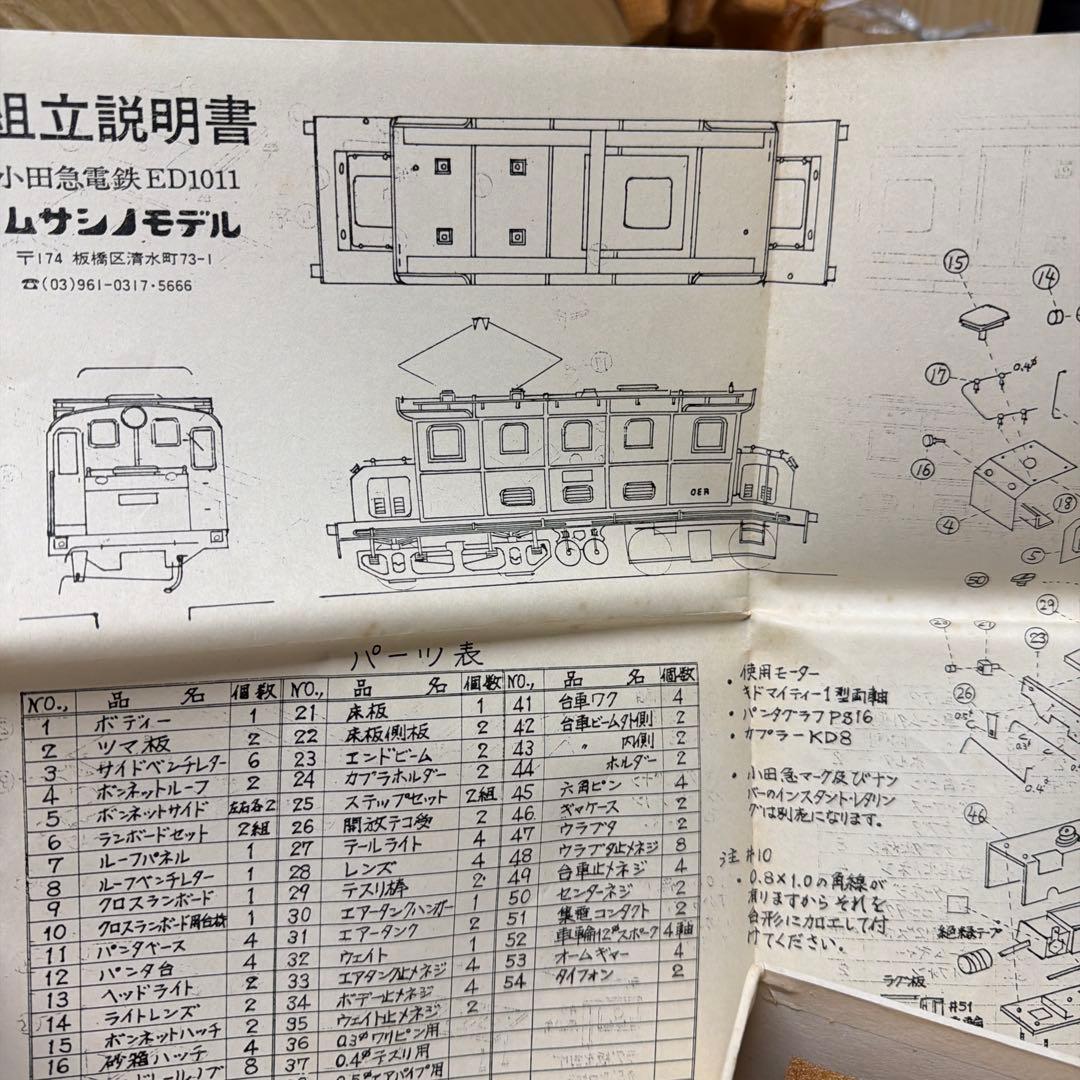 組立説明書
小田急電鉄ED1011
ムサシノモデル
〒174 板橋区清水町73-1
☎(03)961-0317・5666
OER
15
14
17
0.4φ
16
4
18
5
50
29
23
26
46
パーツ表
NO., 品名 個数 NO., 品名 個数 NO., 品名 個数
1 ボディー 1 21 床板 1 41 台車ワク 4
2 ツマ板 2 22 床板側板 2 42 台車ビーム外側 2
3 サイドベンチレター 6 23 エンドビーム 2 43 〃 内側 2
4 ボンネットルーフ 2 24 カプラホルダー 2 44 ホルダー 2
5 ボンネットサイド 左右各2 25 ステップセット 2組 45 六角ピン 4
6 ランボードセット 2組 26 開放テコ受 2 46 ギヤケース 2
7 ルーフパネル 1 27 テールライト 4 47 ウラブタ 2
8 ルーフベンチレター 1 28 レンズ 4 48 ウラブタ止メネジ 8
9 クロスランボード 1 29 テスリ棒 2 49 台車止メネジ 4
10 クロスランボード用台板 1 30 エアータンクハンガー 1 50 センターネジ 2
11 パンタベース 4 31 エアータンク 2 51 集電コンタクト 2
12 パンタ台 4 32 ウェイト 1 52 車輪12φスポーク 4軸
13 ヘッドライト 2 33 エアタンク止メネジ 4 53 オームギヤー 4
14 ライトレンズ 2 34 ボデー止メネジ 4 54 タイフォン 2
15 ボンネットハッチ 2 35 ウェイト止メネジ 2
16 砂箱ハッチ 4 36 0.3φワリピン用
8 37 0.4φテスリ用
0.5φエアパイプ用
・使用モーター
キドマイティー1型両軸
・パンタグラフPS16
・カプラーKD8
・小田急マーク及びナン
バーのインスタント・レタリン
グは別売になります。
注#10
・0.8×1.0の角線が
有りますからそれを
台形に加工して付
けてください。
絶縁テープ
ラグ板
#51